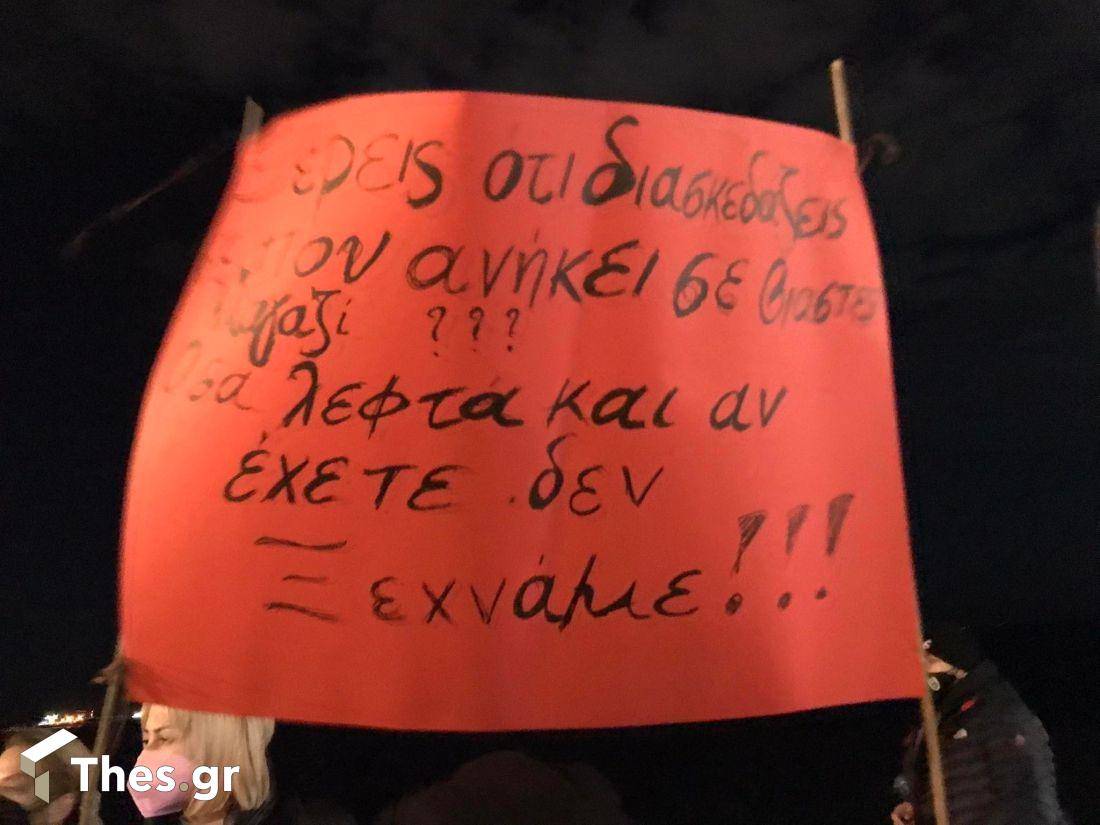 Ξέρεις οτι διασκεδαζεις
που ανήκει σε βιαστες
μαγαζί ???
Οσα λεφτά και αν
έχετε δεν
Ξεχνάμε!!!
Thes.gr